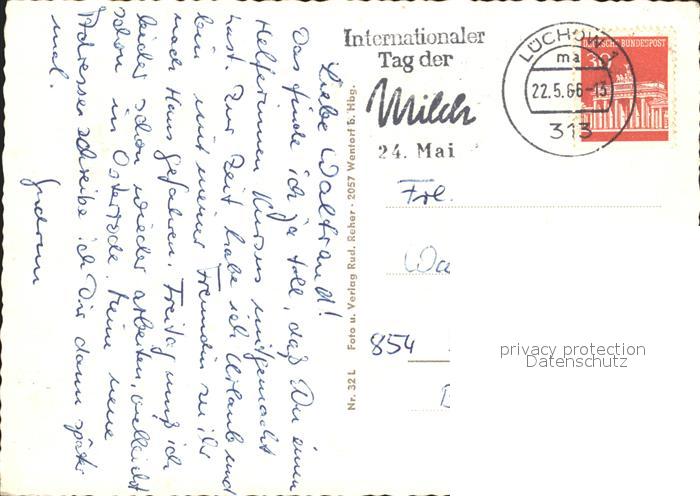 Liebe Waltraud!
Das finde ich ja toll, daß Du einen
Helferinnen Kursus mitgemacht
hast. Zur Zeit habe ich Urlaub und
bin mit meiner Freundin zu ihr
nach Haus gefahren. Freitag muß ich
leider schon wieder arbeiten, vielleicht
schon in Osterode. Meine neue
Adresse schreibe ich Dir dann später
mal.
Gudrun
Nr. 32 L Foto u. Verlag Rud. Reher · 2057 Wentorf b. Hbg.
Internationaler
Tag der
Milch
24. Mai
LÜCHOW
ma
22.5.66-13
313
DEUTSCHE BUNDESPOST
30
Frl.
Wa
854
privacy protection
Datenschutz